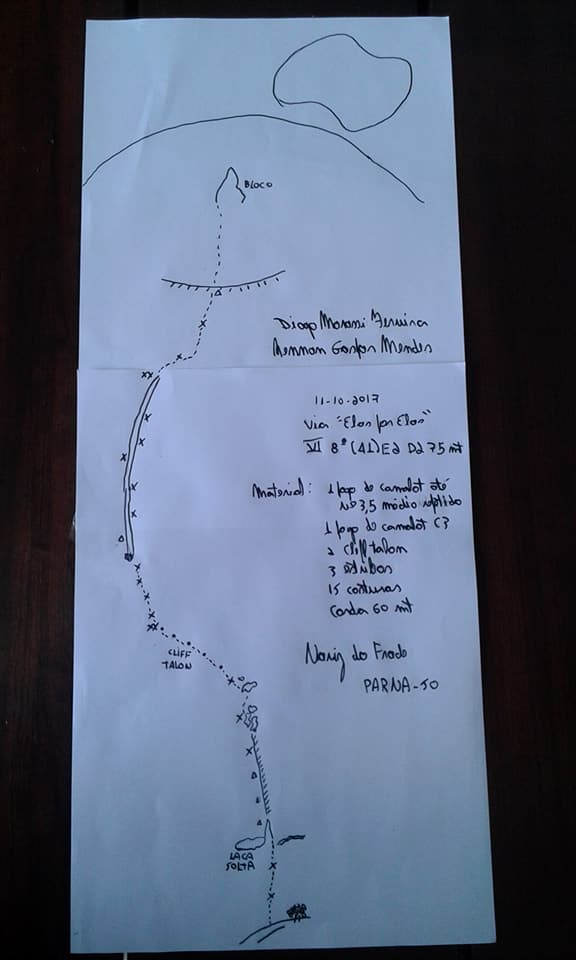 BLOCO
Diogo Morassi Ferreira
Rennan Gaspar Mendes
11-10-2017
Via "Elos por Elos"
VI 8º (A1) E2 D2 75 mt
Material: 1 jogo de camalot até
nº 3,5 médio repetido
1 jogo de camalot C3
2 cliff talon
3 estribos
15 costuras
Corda 60 mt
Nariz do Frade
PARNA-SO
CLIFF
TALON
LACA
SOLTA